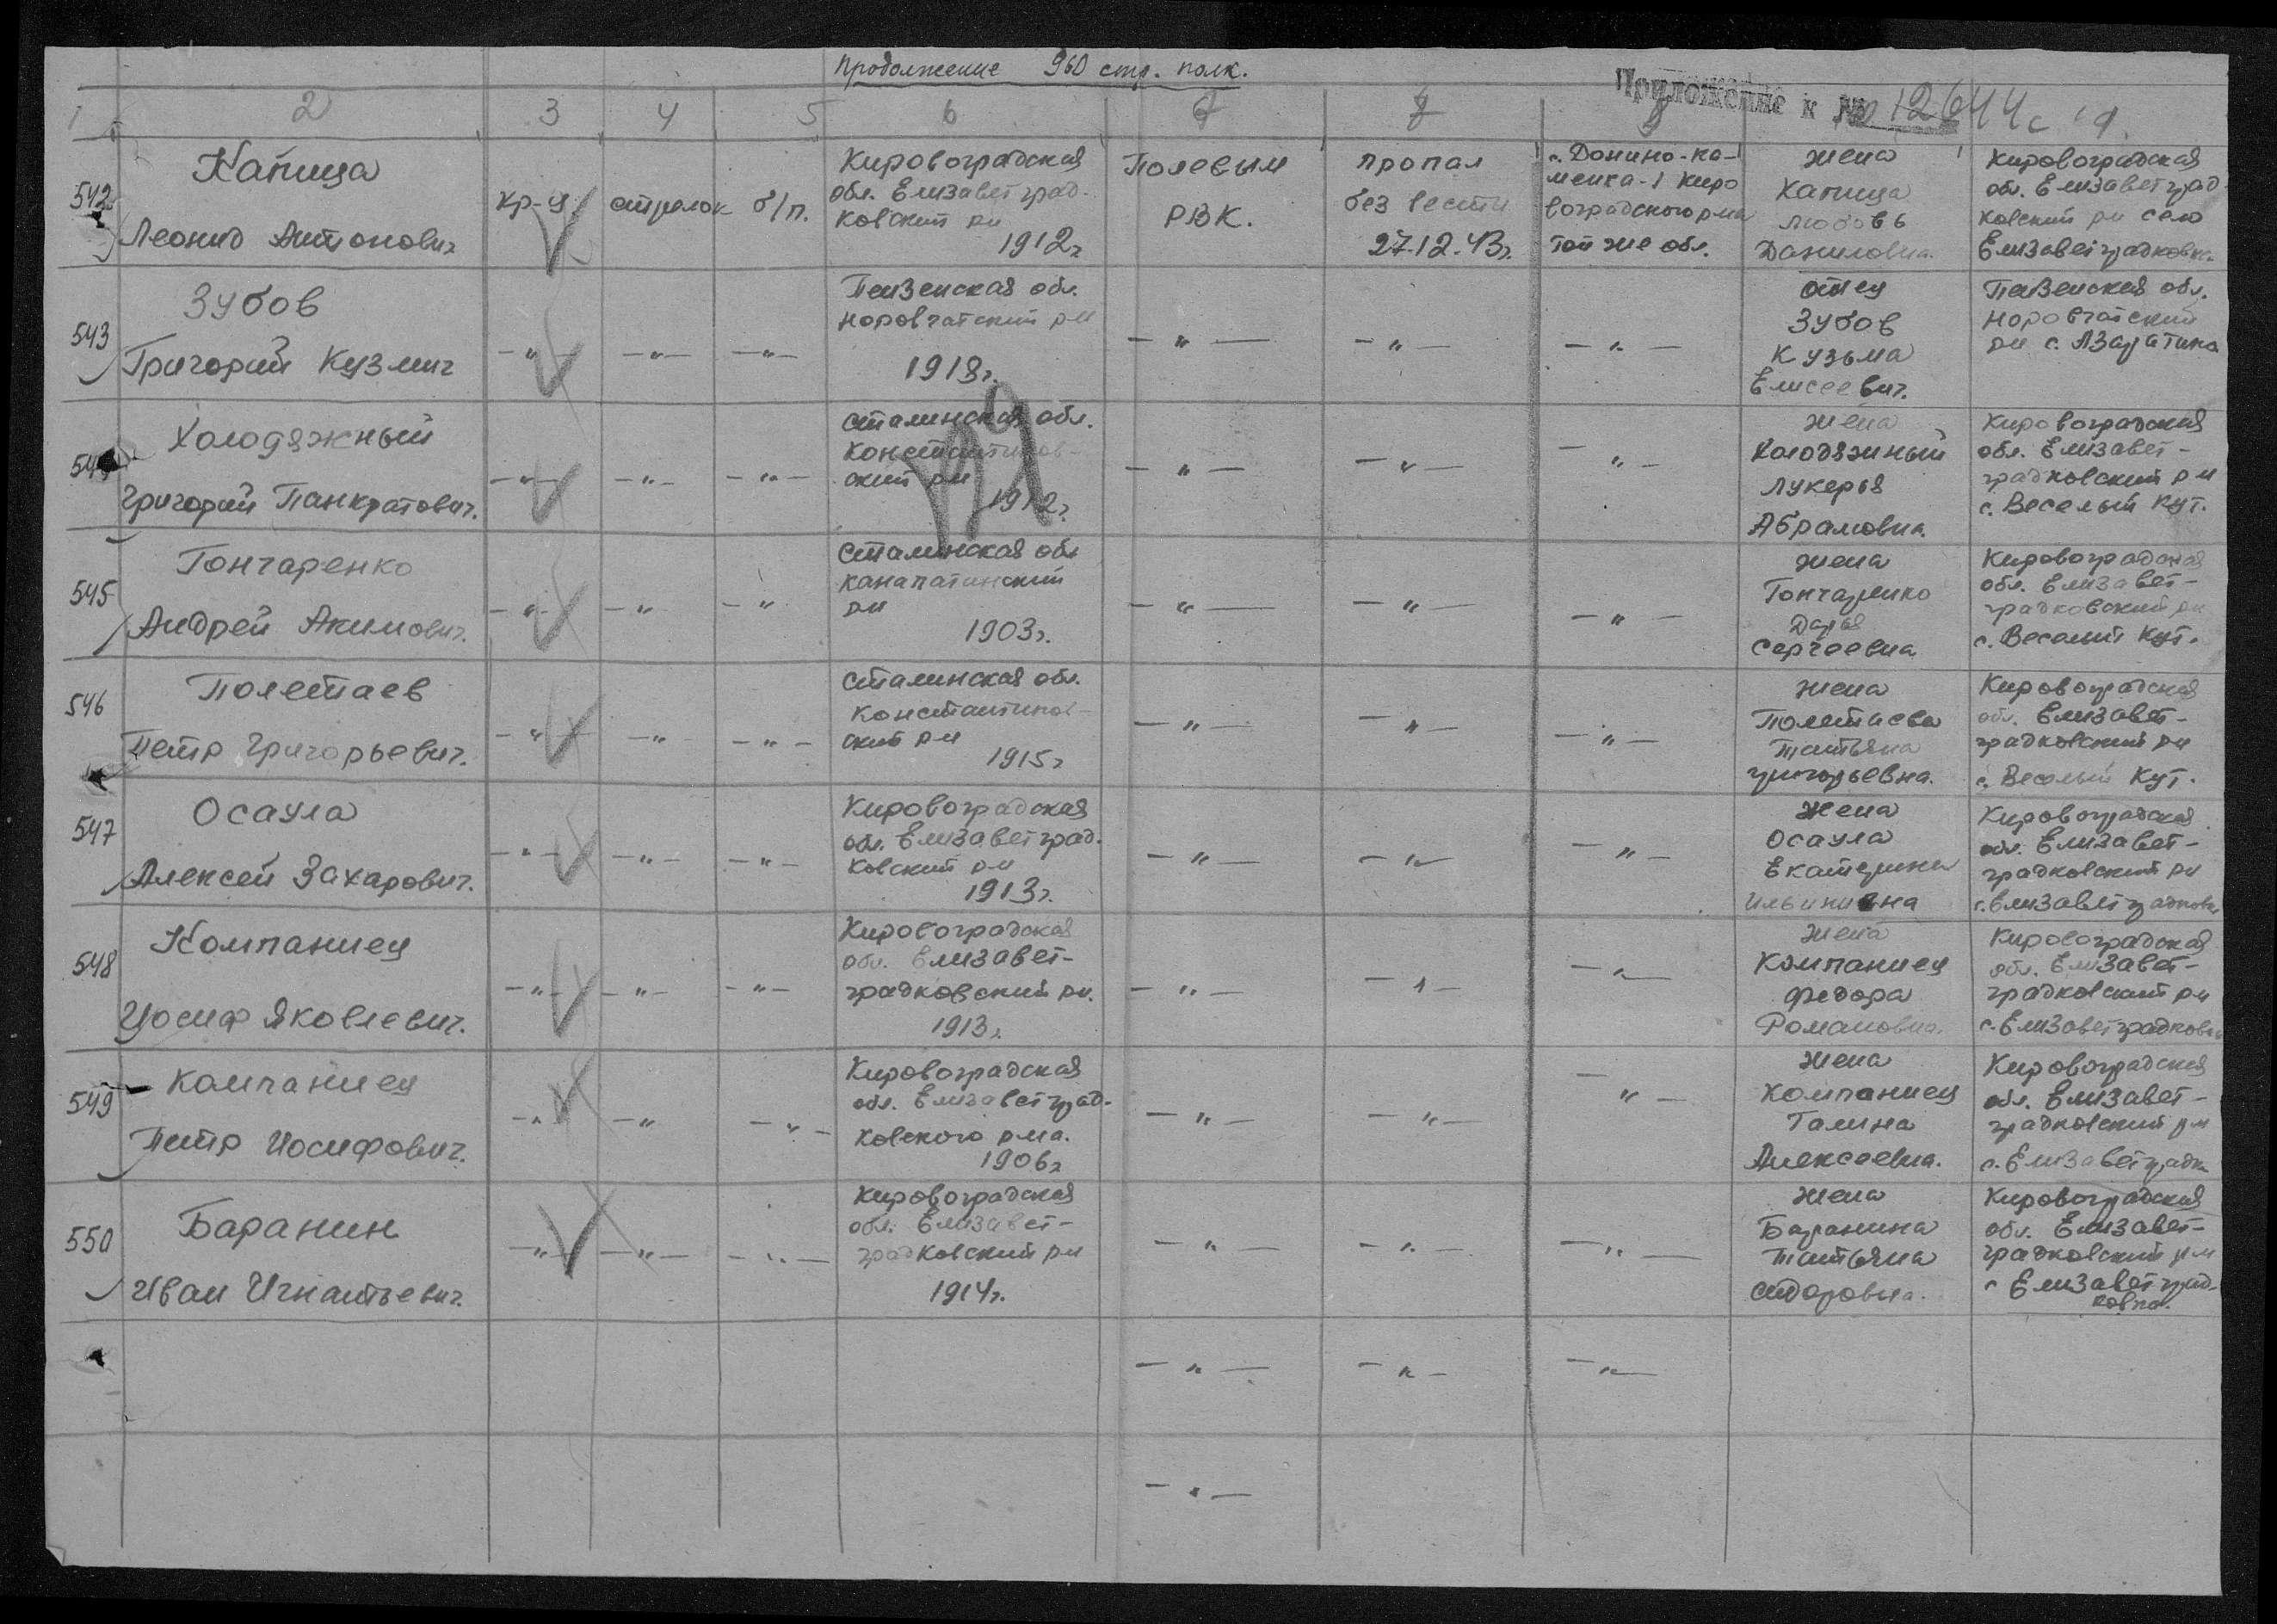 Продолжение 960 стр. полк.
Приложение к № 12644с
1 2 3 4 5 6 7 8
542
Капица
Леонид Антонович
кр-ц
стрелок
б/п.
Кировоградская
обл. Елизаветград-
ковский рн
1912г
Полевым
РВК.
пропал
без вести
27.12.43г.
с. Донино-ка-
менка-1 Киро
воградского рна
той же обл.
жена
Капица
Любовь
Даниловна.
Кировоградская
обл. Елизаветград-
ковский рн село
Елизаветградковка
543
Зубов
Григорий Кузмич
-"- -"- -"-
Пензенская обл.
Норовчатский рн
1918г.
-"- -"- -"-
отец
Зубов
Кузьма
Елисеевич.
Пензенская обл.
Норовчатский
рн с.
Холодяжный
Григорий Панкратович.
-"- -"- -"-
Сталинская обл.
Константинов-
ский рн
1912г.
-"- -"- -"-
жена
Холодяжный
Лукерья
Абрамовна.
Кировоградская
обл. Елизавет-
градковский рн
с. Веселый Кут.
545
Гончаренко
Андрей Акимович.
-"- -"- -"
Сталинская обл
рн
1903г.
-"- -"- -"-
жена
Гончаренко
Дарья
Сергеевна
Кировоградская
обл. Елизавет-
градковский рн
с. Веселый Кут.
546
Полетаев
Петр Григорьевич.
-"- -"- -"-
Сталинская обл.
Константинов-
ский рн
1915г
-"- -"- -"-
жена
Полетаева
Татьяна
Григорьевна.
Кировоградская
обл. Елизавет-
градковский рн
с. Веселый Кут.
547
Осаула
Алексей Захарович.
-"- -"- -"-
Кировоградская
обл. Елизаветград-
ковский рн
1913г.
-"- -"- -"-
жена
Осаула
Екатерина
Ильинична
Кировоградская
обл. Елизавет-
градковский рн
с. Елизаветградковка
548
Компаниец
Иосиф Яковлевич.
-"- -"- -"-
Кировоградская
обл. Елизавет-
градковский рн.
1913г.
-"- -"- -"-
жена
Компаниец
Федора
Романовна.
Кировоградская
обл. Елизавет-
градковский рн
с. Елизаветградковка
549
Компаниец
Петр Иосифович.
-"- -" -"-
Кировоградская
обл. Елизаветград-
ковского рна.
1906г
-"- -"- -"-
жена
Компаниец
Галина
Алексеевна.
Кировоградская
обл. Елизавет-
градковский рн
с. Елизаветградк
550
Баранин
Иван Игнатьевич.
-"- -"- -"-
Кировоградская
обл. Елизавет-
градковский рн
1914г.
-"- -"- -"-
жена
Баранина
Татьяна
Сидоровна.
Кировоградская
обл. Елизавет-
градковский рн
с Елизаветград-
ковка.
-"- -"- -"-
-"-